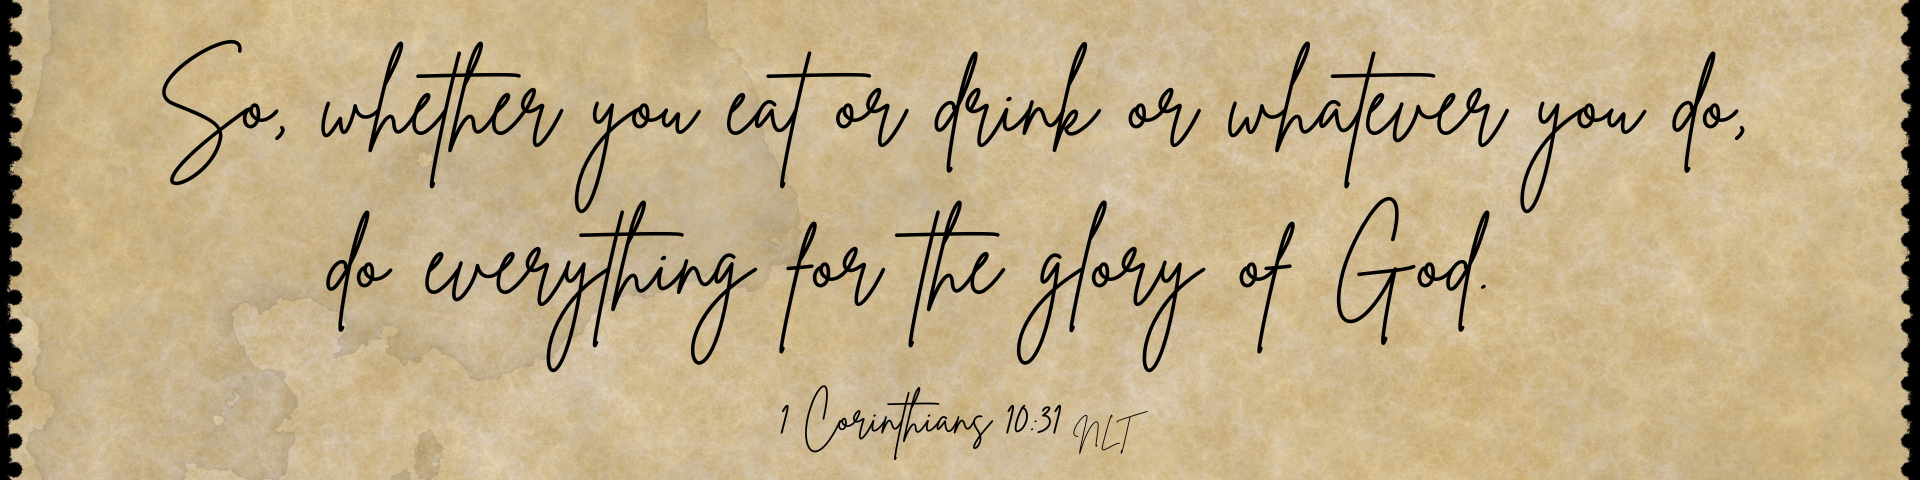 So, whether you eat or drink or whatever you do,
do everything for the glory of God.
1 Corinthians 10:31 NLT